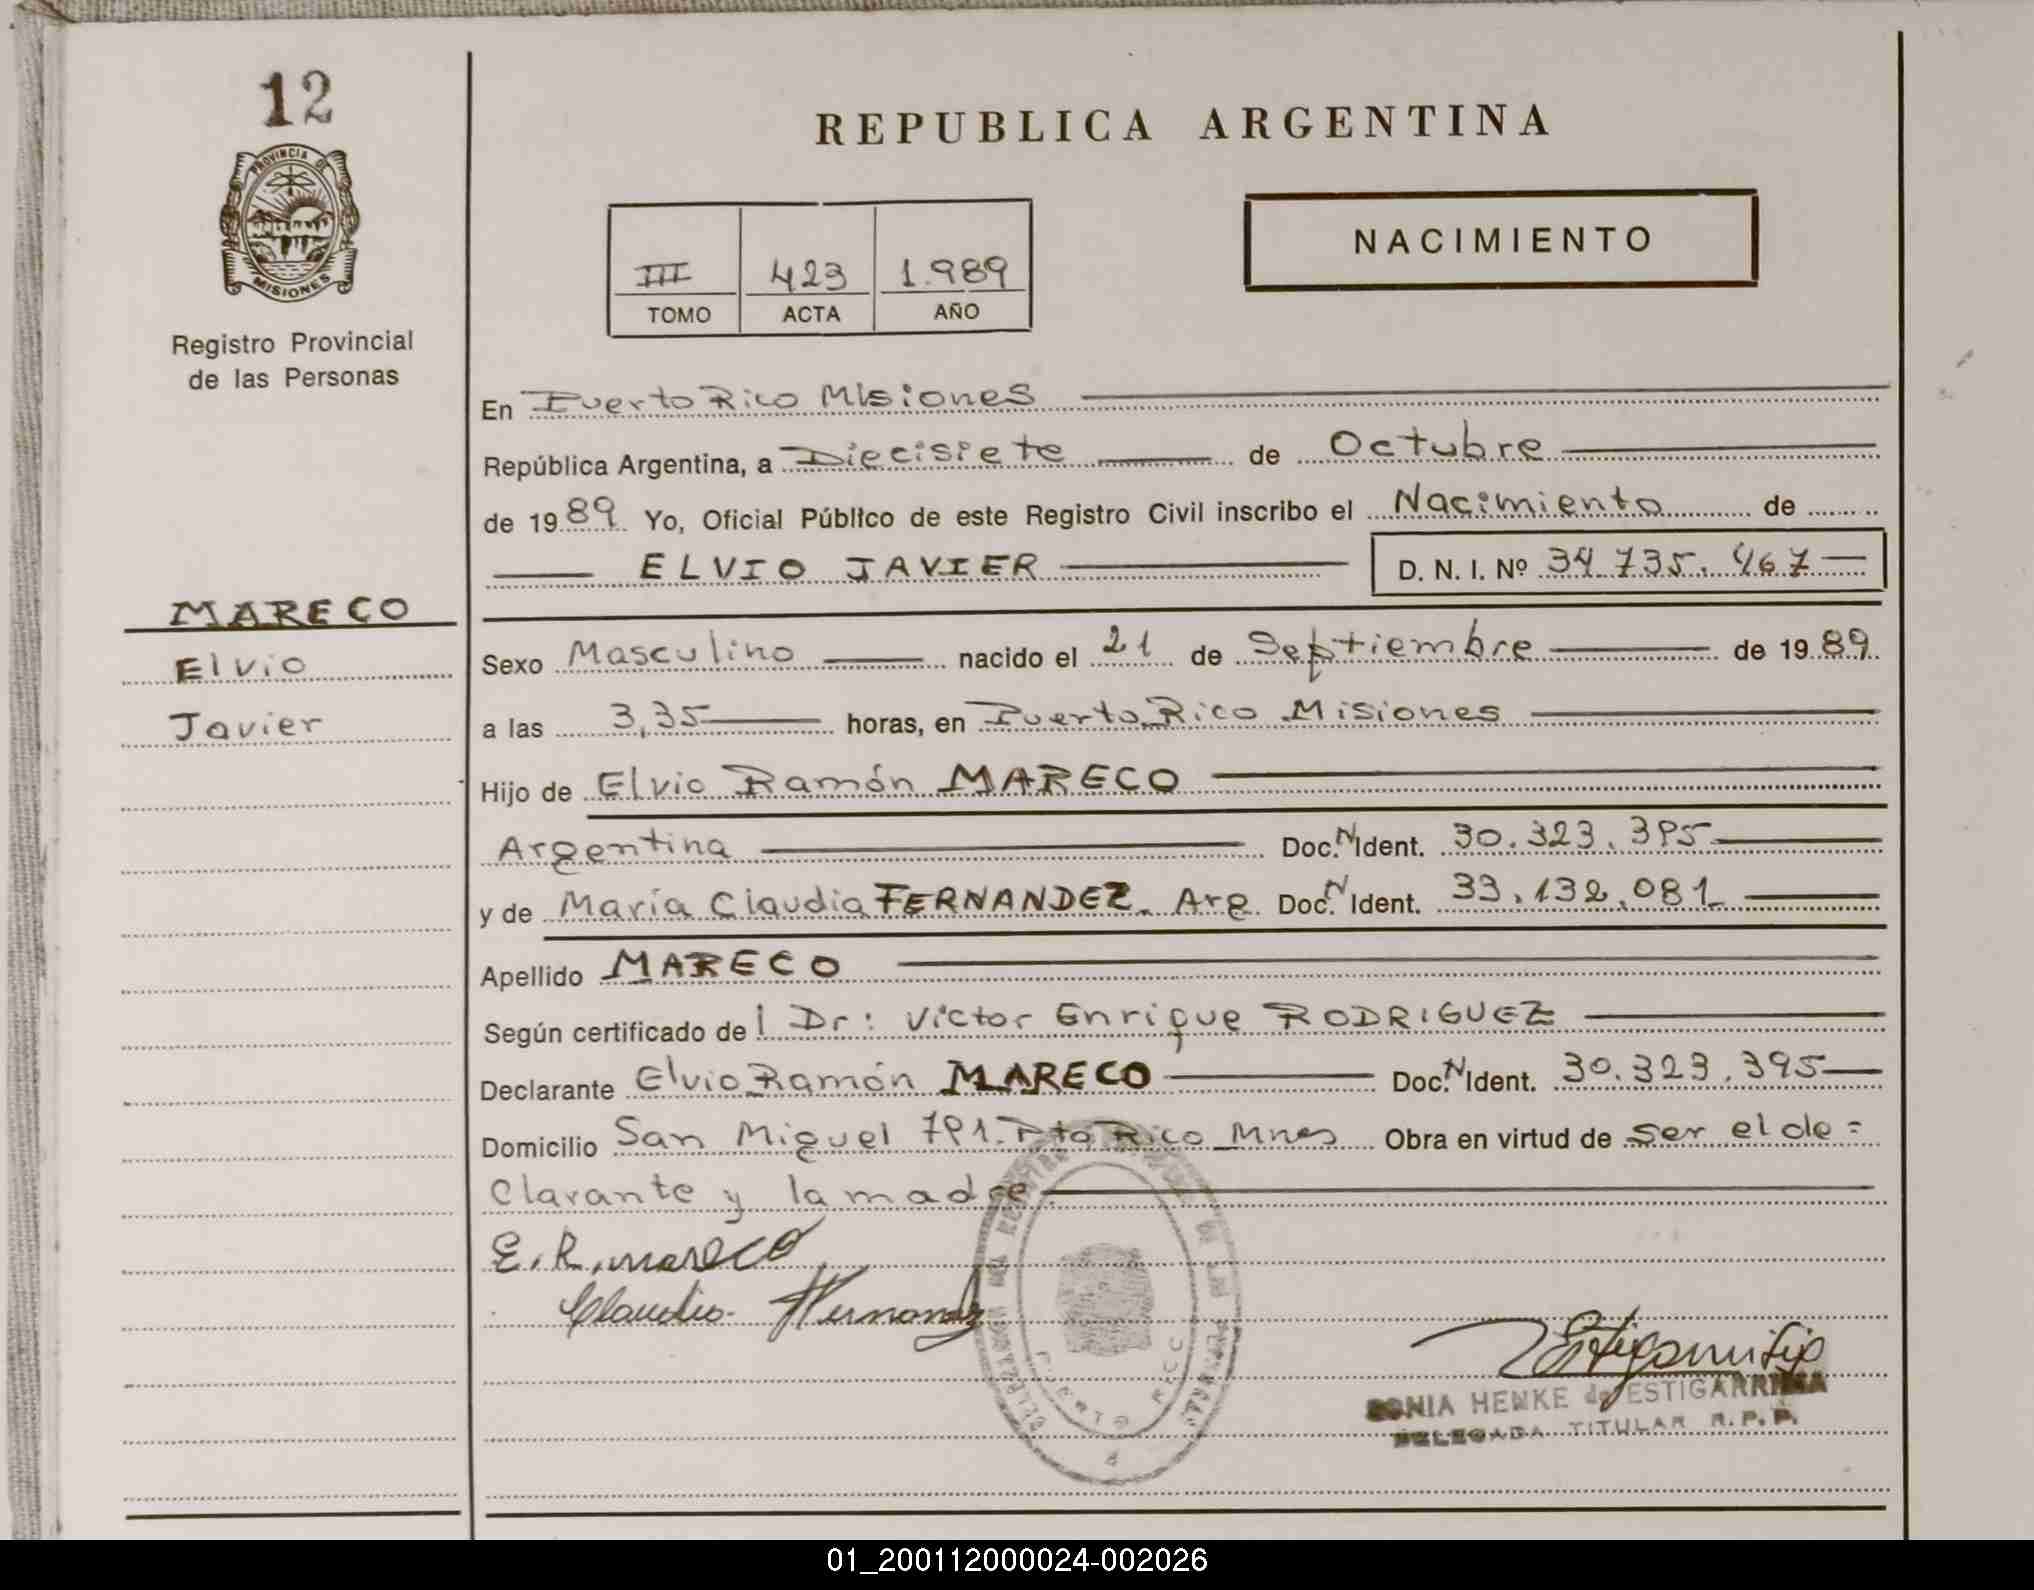 12
PROVINCIA DE
MISIONES
Registro Provincial
de las Personas
MARECO
Elvio
Javier
REPUBLICA ARGENTINA
III 423 1.989
TOMO ACTA AÑO
NACIMIENTO
En Puerto Rico Misiones
República Argentina, a Diecisiete de Octubre
de 1989 Yo, Oficial Público de este Registro Civil inscribo el Nacimiento de
ELVIO JAVIER D. N. I. Nº 34.735.467
Sexo Masculino nacido el 21 de Septiembre de 1989
a las 3,35 horas, en Puerto Rico Misiones
Hijo de Elvio Ramón MARECO
Argentina Doc. N Ident. 30.323.395
y de María Claudia FERNANDEZ. Arg. Doc. N Ident. 33.132.081
Apellido MARECO
Según certificado del Dr: Victor Enrique RODRIGUEZ
Declarante Elvio Ramón MARECO Doc. N Ident. 30.323.395
Domicilio San Miguel 791. Pto Rico Mnes Obra en virtud de ser el de=
clarante y la madre
E. R. mareco
Claudia Fernandez
PUERTO RICO
Estigarribia
SONIA HENKE de ESTIGARRIBIA
DELEGADA TITULAR R.P.P.
01_200112000024-002026